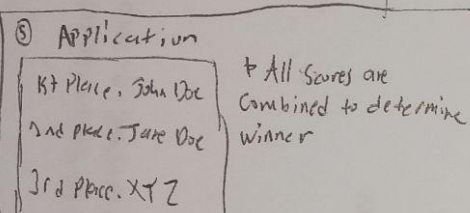 ⑤ Application
1st Place. John Doe
2nd place. Jane Doe
3rd Place. XYZ
* All Scores are
Combined to determine
winner